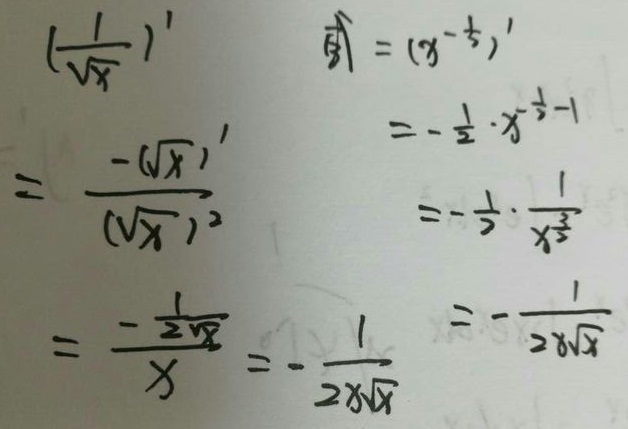 (1/√x)'
= -(√x)' / (√x)²
= (-1/(2√x)) / x = -1/(2x√x)
= (x^(-1/2))'
= -1/2 · x^(-1/2-1)
= -1/2 · 1/x^(3/2)
= -1/(2x√x)